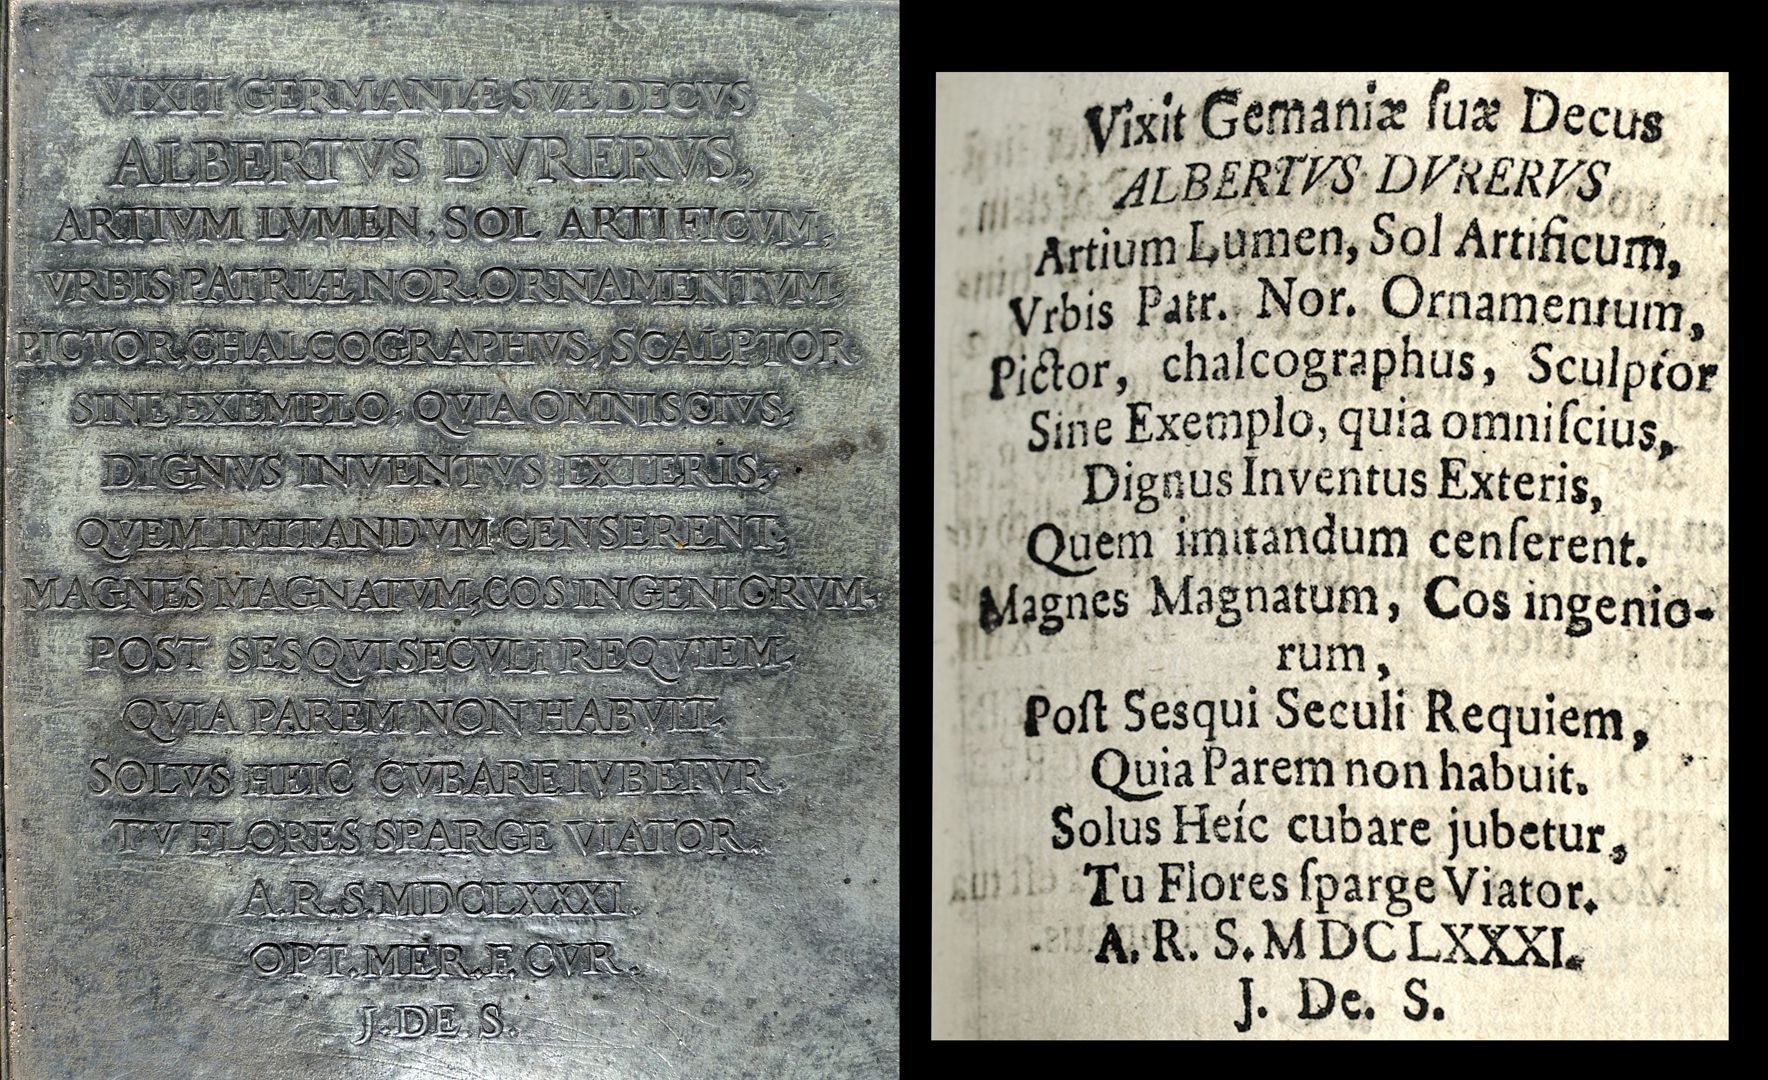 VIXIT GERMANIÆ SVÆ DECVS
ALBERTVS DVRERVS,
ARTIVM LVMEN, SOL ARTIFICVM,
VRBIS PATRIÆ NOR. ORNAMENTVM,
PICTOR, CHALCOGRAPHVS, SCALPTOR
SINE EXEMPLO, QVIA OMNISCIVS,
DIGNVS INVENTVS EXTERIS,
QVEM IMITANDVM CENSERENT,
MAGNES MAGNATVM, COS INGENIORVM.
POST SESQVISECVLI REQVIEM,
QVIA PAREM NON HABVIT,
SOLVS HEIC CVBARE IVBETVR.
TV FLORES SPARGE VIATOR.
A.R.S. MDCLXXXI.
OPT. MER. F. CVR.
J. DE S.
Vixit Gemaniæ ſuæ Decus
ALBERTVS DVRERVS
Artium Lumen, Sol Artificum,
Vrbis Patr. Nor. Ornamentum,
Pictor, chalcographus, Sculptor
Sine Exemplo, quia omniſcius,
Dignus Inventus Exteris,
Quem imitandum cenſerent.
Magnes Magnatum, Cos ingenio-
rum,
Poſt Sesqui Seculi Requiem,
Quia Parem non habuit.
Solus Heíc cubare jubetur,
Tu Flores ſparge Viator.
A. R. S. MDCLXXXI.
J. De. S.